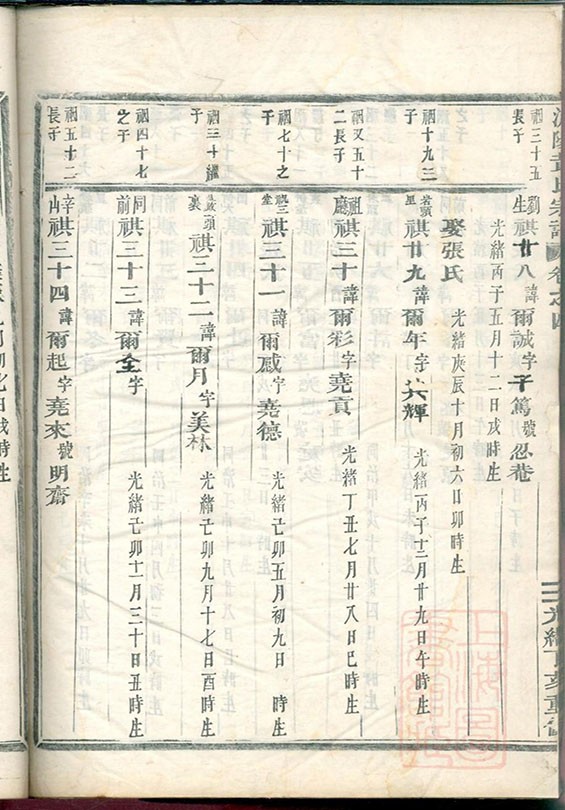 黃氏宗譜 卷之四
光緒丁亥重修
祠三十五長子
劉生 祺廿八 諱爾誠 字子篤 號忍巷
光緒丙子五月十二日戌時生
祠十九三子
祺廿九 諱爾年 字 輝 光緒丙子十二月廿九日午時生
娶張氏 光緒庚辰十月初六日卯時生
祠又五十二長子
祖廳 祺三十 諱爾彩 字堯貢 光緒丁丑七月廿八日巳時生
祠七十之子
祺三十一 諱爾咸 字堯德 光緒己卯五月初九日 時生
祠三十繼子
祺三十二 諱爾月 字美林 光緒己卯九月十七日酉時生
祠四十七之子
同前 祺三十三 諱爾全 字 光緒己卯十一月三十日丑時生
祠五十二長子
辛山 祺三十四 諱爾起 字堯來 號明齋